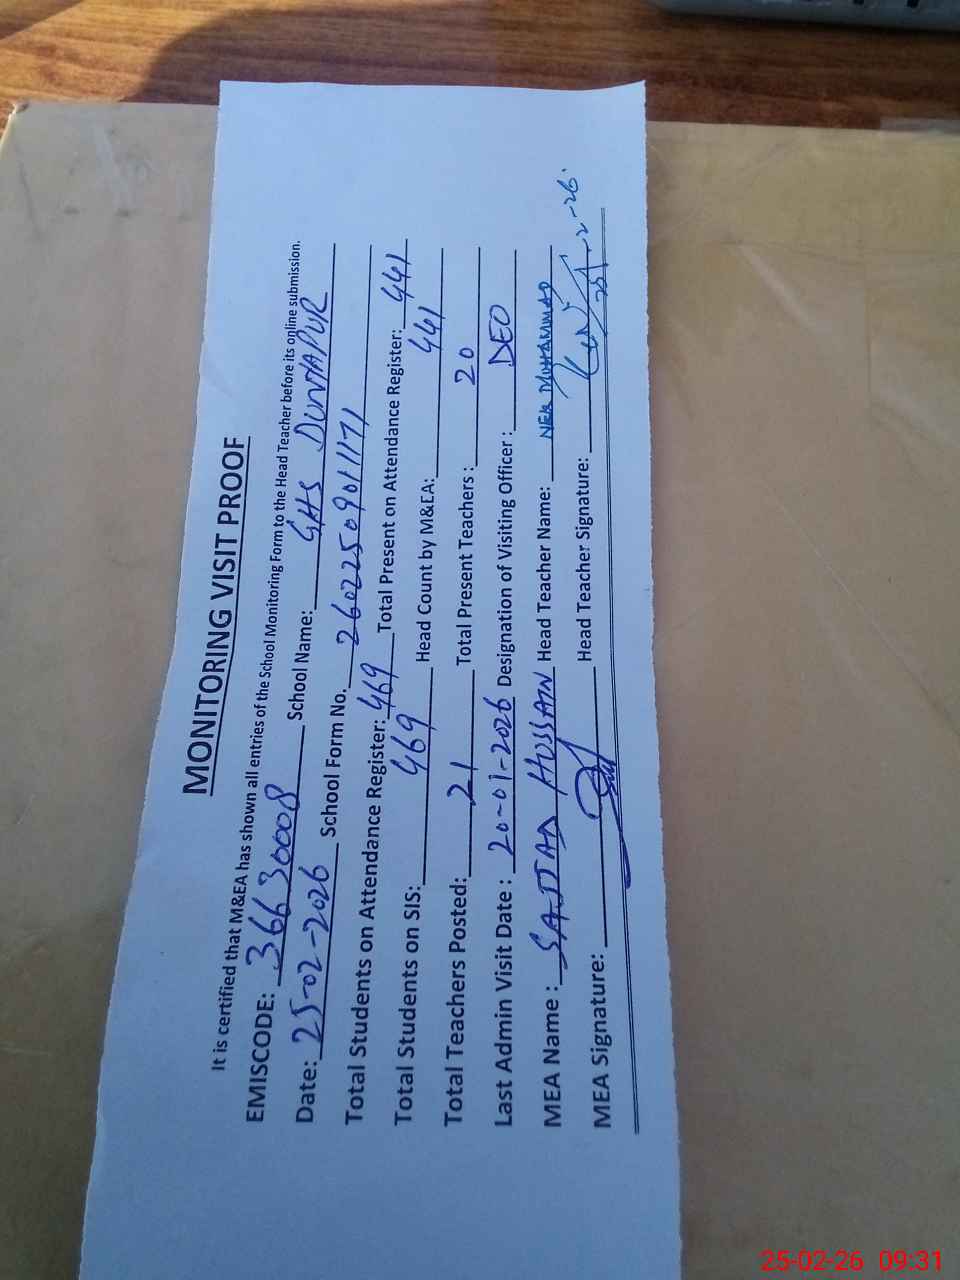 MONITORING VISIT PROOF
It is certified that M&EA has shown all entries of the School Monitoring Form to the Head Teacher before its online submission.
EMISCODE: 36630008 School Name: GHS DUNYAPUR
Date: 25-02-2026 School Form No. 2602250901171
Total Students on Attendance Register: 469 Total Present on Attendance Register: 441
Total Students on SIS: 469 Head Count by M&EA: 441
Total Teachers Posted: 21 Total Present Teachers: 20
Last Admin Visit Date: 20-01-2026 Designation of Visiting Officer: DEO
MEA Name: SAJJAD HUSSAIN Head Teacher Name: NEK MUHAMMAD
MEA Signature: Head Teacher Signature:
25-02-26 09:31